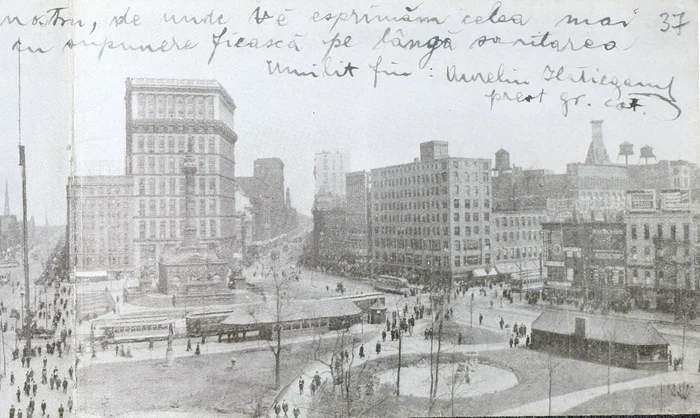 nostru, de unde Vĕ esprimăm celea mai 37
cu supunere fiească pe lângă sărutarea
Umilit fiu: Aureliu Hatieganu
preot gr. cat.